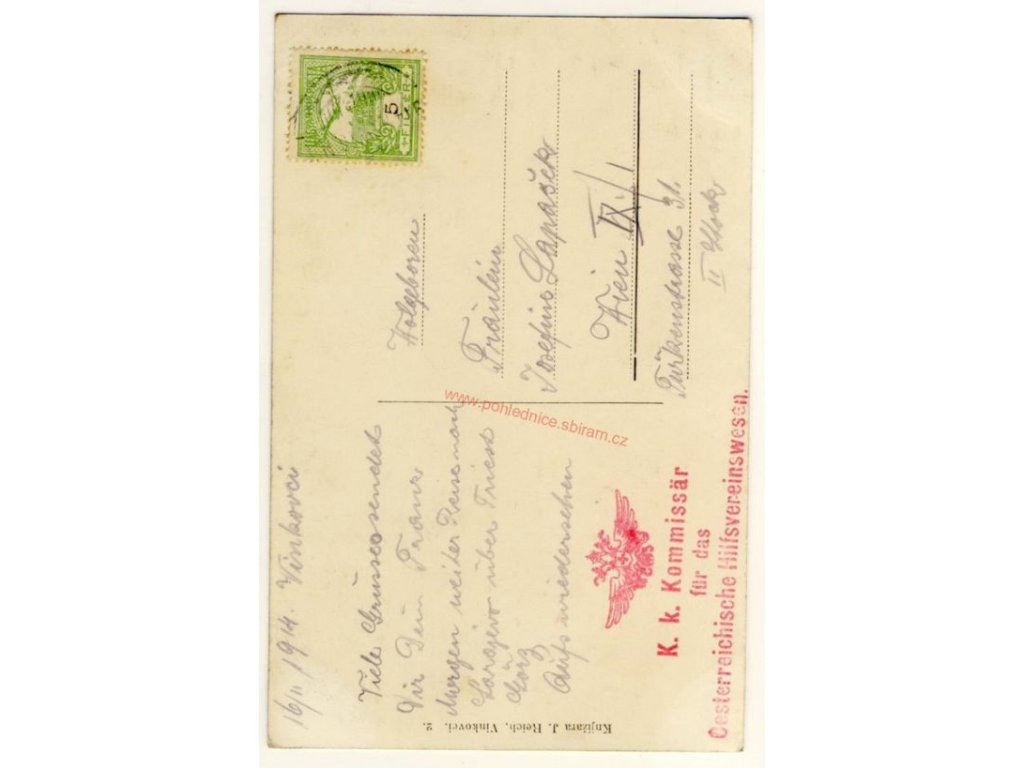 16/II 1914. Vinkovci
Viele Grüsse sendet
Dir Dein Franz
Morgen weiter Reise nach
Sarajevo über Triest
Görz
Aufs wiedersehen
Wolgeboren
Fräulein
Josefine Lapaček
Wien IX/1
Türkenstrasse 31.
II Stock
K. k. Kommissär
für das
Oesterreichische Hilfsvereinswesen.
Knjižara J. Reich, Vinkovci. 2.
5
FILLER
www.pohlednice.sbiram.cz